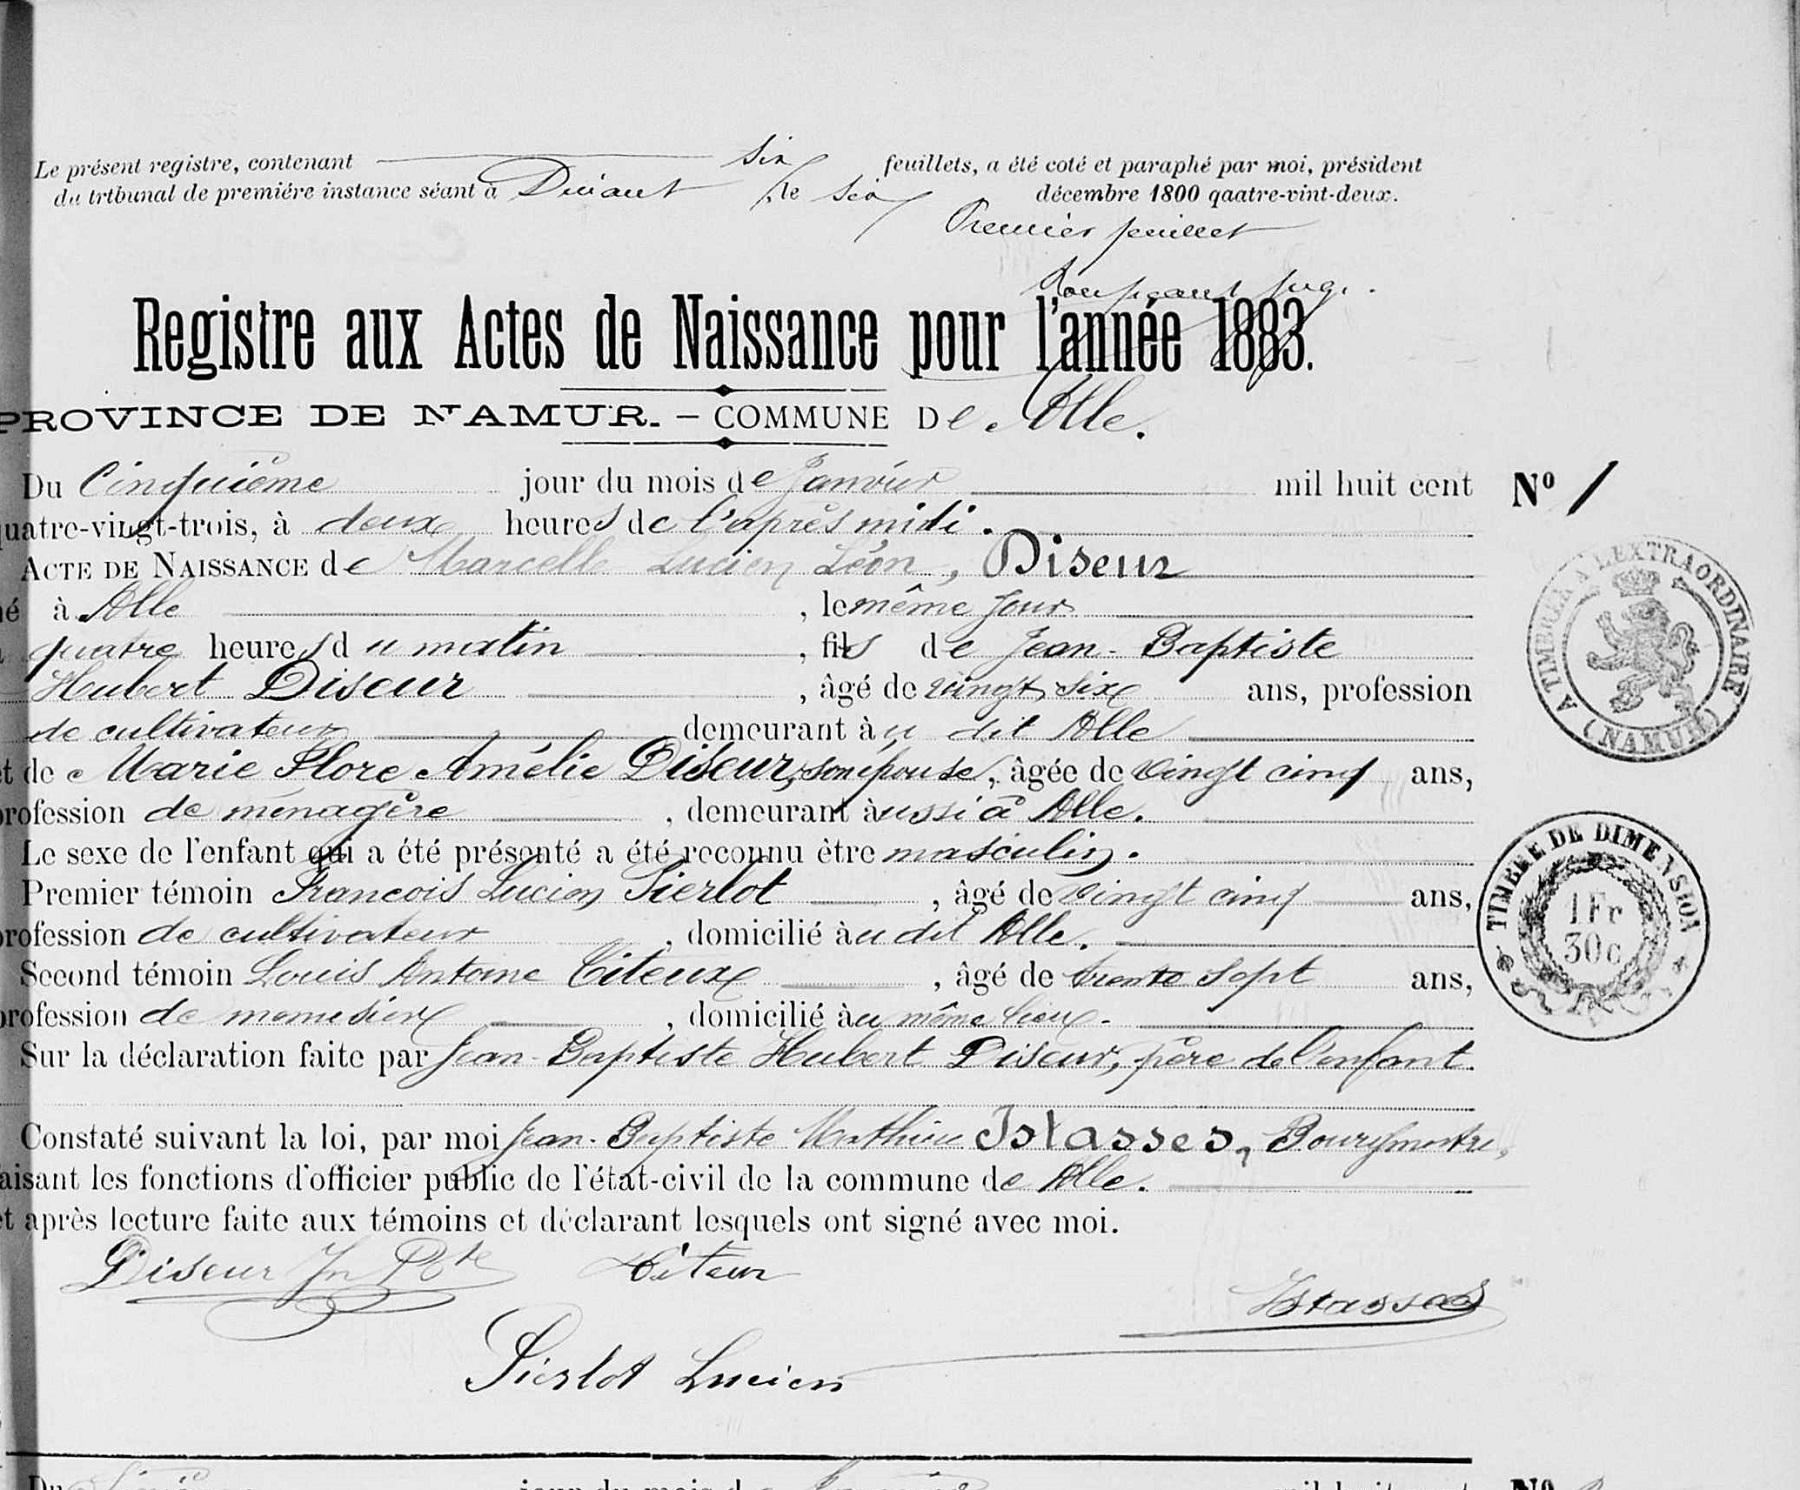 Le présent registre, contenant six feuillets, a été coté et paraphé par moi, président
du tribunal de premiére instance séant à Dinant, le six décembre 1800 qaatre-vint-deux.
Premier feuillet
juge.
Registre aux Actes de Naissance pour l'année 1883.
PROVINCE DE NAMUR. – COMMUNE De Alle.
Du Cinquième jour du mois de Janvier mil huit cent
quatre-vingt-trois, à deux heures de l'après midi.
ACTE DE NAISSANCE de Marcelle Lucien Léon, Diseur
né à Alle, le même jour
à quatre heures du matin, fils de Jean-Baptiste
Hubert Diseur, âgé de vingt six ans, profession
de cultivateur demeurant au dit Alle
et de Marie Flore Amélie Diseur, son épouse, âgée de vingt cinq ans,
profession de ménagère, demeurant aussi à Alle.
Le sexe de l'enfant qui a été présenté a été reconnu être masculin.
Premier témoin Francois Lucien Pierlot, âgé de vingt cinq ans,
profession de cultivateur, domicilié au dit Alle.
Second témoin Louis Antoine Titeux, âgé de trente sept ans,
profession de, domicilié au même lieu.
Sur la déclaration faite par Jean-Baptiste Hubert Diseur, père de l'enfant.
Constaté suivant la loi, par moi Jean-Baptiste Mathieu Istasses, Bourgmestre,
faisant les fonctions d'officier public de l'état-civil de la commune de Alle.
et après lecture faite aux témoins et déclarant lesquels ont signé avec moi.
Diseur Jn Bte Titeux
Istasses
Pierlot Lucien
No 1
A TIMBRER A L'EXTRAORDINAIRE
(NAMUR)
TIMBRE DE DIMENSION
1 Fr
30c
Du jour du mois de mil huit cent No